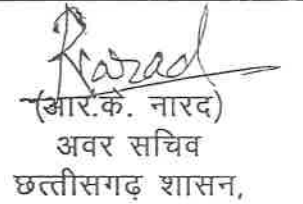 Narad
(आर.के. नारद)
अवर सचिव
छत्तीसगढ़ शासन,